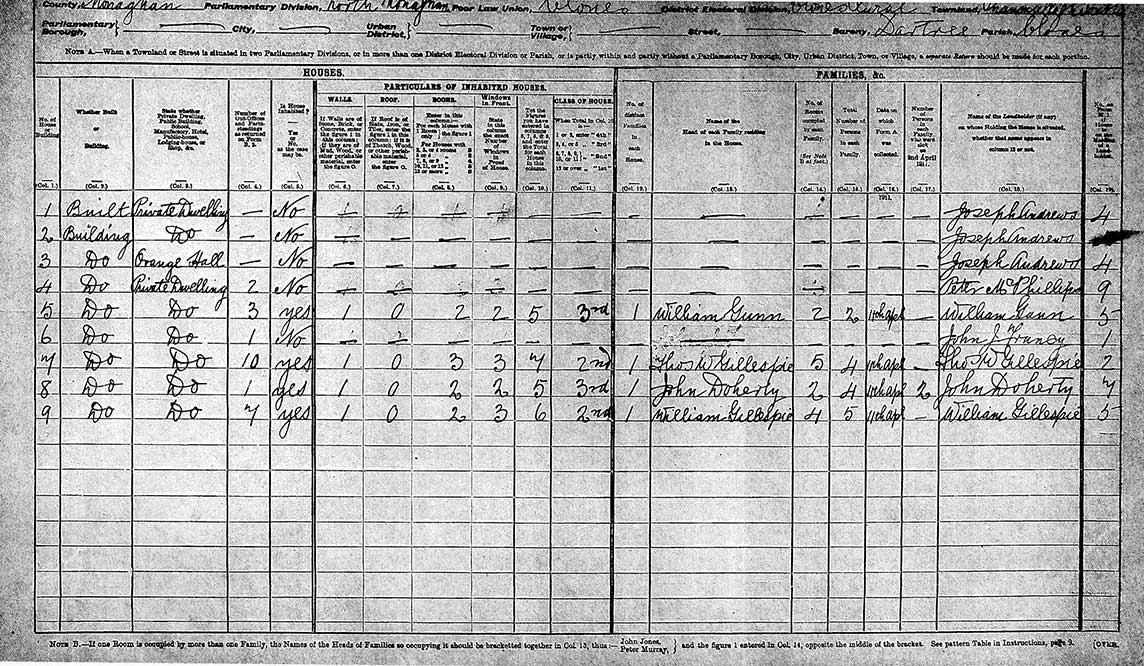 County, Monaghan Parliamentary Division, North Monaghan Poor Law Union, Clones District Electoral Division, Townland,
Parliamentary Borough, — City, — Urban District, — Town or Village, — Street, — Barony, Dartree Parish, Clones
NOTE A.—When a Townland or Street is situated in two Parliamentary Divisions, or in more than one District Electoral Division or Parish, or is partly within and partly without a Parliamentary Borough, City, Urban District, Town, or Village, a separate Return should be made for each portion.
HOUSES. FAMILIES, &c.
PARTICULARS OF INHABITED HOUSES.
WALLS. ROOF. ROOMS. Windows in Front. CLASS OF HOUSE.
No. of House or Building. Whether Built or Building. State whether Private Dwelling, Public Building, School, Manufactory, Hotel, Public-house, Lodging-house, or Shop, &c. Number of Out-Offices and Farm-steadings as returned on Form B. 2. Is House Inhabited? Yes or No, as the case may be.
If Walls are of Stone, Brick, or Concrete, enter the figure 1 in this column; if they are of Mud, Wood, or other perishable material, enter the figure 0.
If Roof is of Slate, Iron, or Tiles, enter the figure 1 in this column; if it is of Thatch, Wood, or other perishable material, enter the figure 0.
Enter in this column:—
State in this column the exact Number of Windows in Front of House.
No. of distinct Families in each House. Name of the Head of each Family residing in the House. No. of Rooms occupied by each Family. (See Note B at foot.) Total Number of Persons in each Family. Date on which Form A was collected. Number of Persons in each Family, who were sick on 2nd April 1911.
Name of the Landholder (if any) on whose Holding the House is situated, whether that name appears in column 13 or not.
(Col. 1.) (Col. 2.) (Col. 3.) (Col. 4.) (Col. 5.) (Col. 6.) (Col. 7.) (Col. 8.) (Col. 9.) (Col. 10.) (Col. 11.) (Col. 12.) (Col. 13.) (Col. 14.) (Col. 15.) (Col. 16.) (Col. 17.) (Col. 18.) (Col. 19.)
1911.
1 Built Private Dwelling — No — — — — — — — — — — — — Joseph Andrews 4
2 Building Do — No — — — — — — — — — — — — Joseph Andrews
3 Do Orange Hall — No — — — — — — — — — — — — Joseph Andrews 4
4 Do Private Dwelling 2 No — — — — — — — — — — — — Peter McPhillips 9
5 Do Do 3 yes 1 0 2 2 5 3rd 1 William Gunn 2 2 11thapl — William Gunn 5
6 Do Do 1 No — — — — — — — — — — — John J 1
7 Do Do 10 yes 1 0 3 3 7 2nd 1 Thos W Gillespie 5 4 11thapl — Thos W Gillespie 2
8 Do Do 1 yes 1 0 2 2 5 3rd 1 John Doherty 2 4 11thapl 2 John Doherty 7
9 Do Do 7 yes 1 0 2 3 6 2nd 1 William Gillespie 4 5 11thapl — William Gillespie 5
NOTE B.—If one Room is occupied by more than one Family, the Names of the Heads of Families so occupying it should be bracketted together in Col. 13, thus:— John Jones, Peter Murray, } and the figure 1 entered in Col. 14, opposite the middle of the bracket. See pattern Table in Instructions, page 9. [OVER.